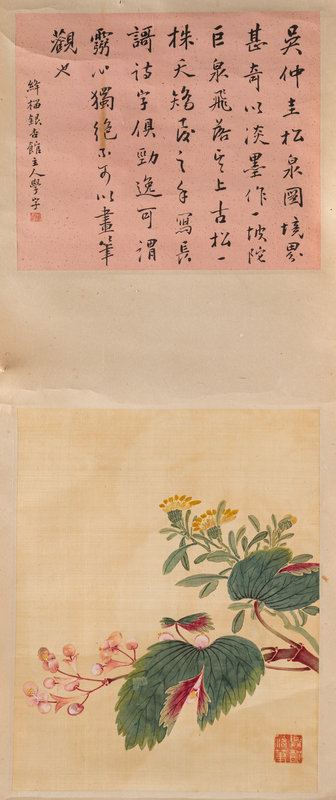 吳仲圭松泉圖境界
甚奇以淡墨作一坡陀
巨泉飛落其上古松一
株天矯
之手寫長
謌詩字俱勁逸可謂
霧心獨絕不可以畫筆
觀也
絳楅銀杏館主人學字